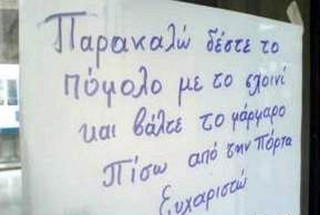 Παρακαλώ δέστε το
πόμολο με το σχοινί
και βάλτε το φάρμαρο
πίσω από την Πόρτα
Ευχαριστώ